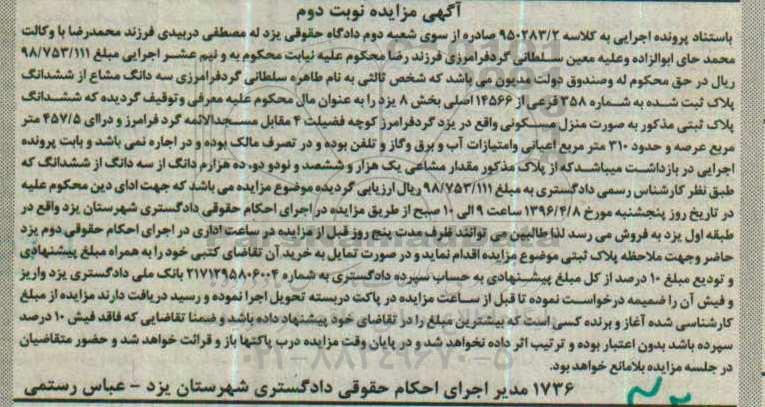 آگهی مزایده نوبت دوم
باستناد پرونده اجرایی به کلاسه ۹۵۰۲۸۳/۲ صادره از سوی شعبه دوم دادگاه حقوقی یزد له مصطفی دربیدی فرزند محمدرضا با وکالت
محمد حای ابوالزاده وعلیه معین سلطانی گردفرامرزی فرزند رضا محکوم علیه نیابت محکوم به و نیم عشر اجرایی مبلغ ۹۸/۷۵۳/۱۱۱
ریال در حق محکوم له وصندوق دولت مدیون می باشد که شخص ثالثی به نام طاهره سلطانی گردفرامرزی سه دانگ مشاع از ششدانگ
پلاک ثبت شده به شماره ۳۵۸ فرعی از ۱۴۵۶۶ اصلی بخش ۸ یزد را به عنوان مال محکوم علیه معرفی وتوقیف گردیده که ششدانگ
پلاک ثبتی مذکور به صورت منزل مسکونی واقع در یزد گردفرامرز کوچه فضیلت ۴ مقابل مسجدالائمه گرد فرامرز و درای ۴۵۷/۵ متر
مربع عرصه و حدود ۳۱۰ متر مربع اعیانی وامتیازات آب و برق وگاز و تلفن بوده و در تصرف مالک بوده و در اجاره نمی باشد و بابت پرونده
اجرایی در بازداشت میباشدکه از پلاک مذکور مقدار مشاعی یک هزار و ششصد و نودو دو، ده هزارم دانگ از سه دانگ از ششدانگ که
طبق نظر کارشناس رسمی دادگستری به مبلغ ۹۸/۷۵۳/۱۱۱ ریال ارزیابی گردیده موضوع مزایده می باشد که جهت ادای دین محکوم علیه
در تاریخ روز پنجشنبه مورخ ۱۳۹۶/۴/۸ ساعت ۹ الی ۱۰ صبح از طریق مزایده در اجرای احکام حقوقی دادگستری شهرستان یزد واقع در
طبقه اول یزد به فروش می رسد لذا طالبین می توانند ظرف مدت پنج روز قبل از مزایده در ساعت اداری در اجرای احکام حقوقی دوم یزد
حاضر وجهت ملاحظه پلاک ثبتی موضوع مزایده اقدام نماید و در صورت تمایل به خرید آن تقاضای کتبی خود را به همراه مبلغ پیشنهادی
و تودیع مبلغ ۱۰ درصد از کل مبلغ پیشنهادی به حساب سپرده دادگستری به شماره ۲۱۷۱۲۹۵۸۰۶۰۰۴ بانک ملی دادگستری یزد واریز
و فیش آن را ضمیمه درخواست نموده تا قبل از ساعت مزایده در پاکت دربسته تحویل اجرا نموده و رسید دریافت دارند مزایده از مبلغ
کارشناسی شده آغاز و برنده کسی است که بیشترین مبلغ را در تقاضای خود پیشنهاد داده باشد و ضمنا تقاضایی که فاقد فیش ۱۰ درصد
سپرده باشد بدون اعتبار بوده و ترتیب اثر داده نخواهد شد و در پایان وقت مزایده درب پاکتها باز و قرائت خواهد شد و حضور متقاضیان
در جلسه مزایده بلامانع خواهد بود.
۱۷۳۶ مدیر اجرای احکام حقوقی دادگستری شهرستان یزد - عباس رستمی
۰۲۱-۸۸۳۴۹۶۷۰-۵